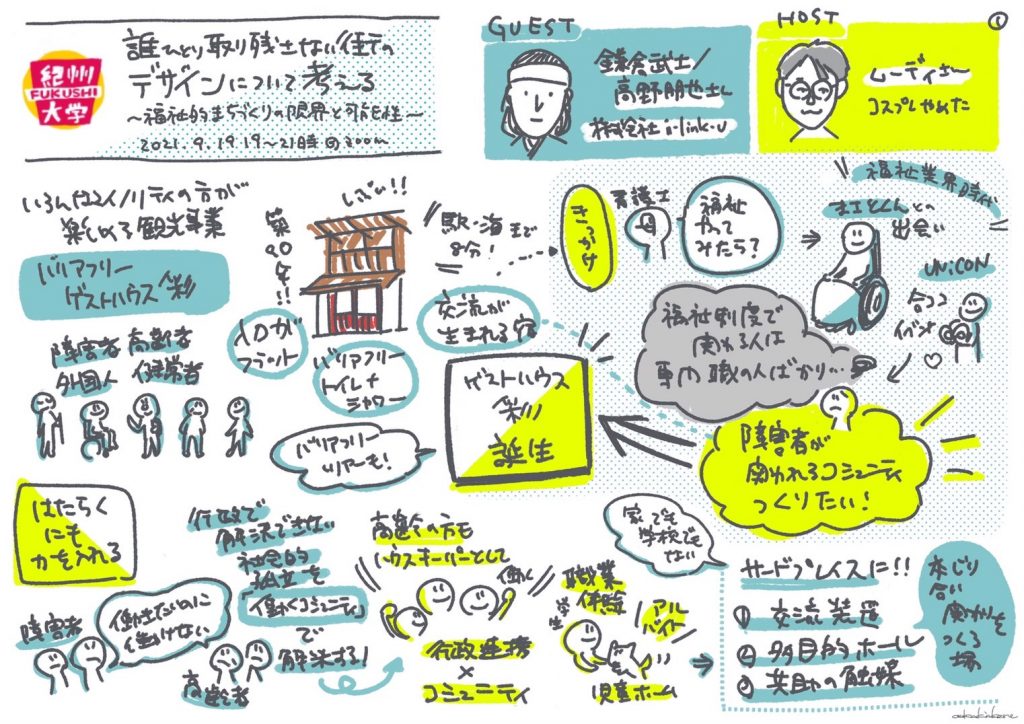 紀州
FUKUSHI
大学
誰ひとり取り残さない街の
デザインについて考える
〜福祉的まちづくりの限界と可能性〜
2021.9.19 19〜21時 @zoom
GUEST
鎌倉武士/
高野朋也さん
株式会社 i-link-u
HOST
①
ムーディさん
コスプレやめた
いろんなマイノリティの方が
楽しめる観光事業
バリアフリー
ゲストハウス 彩
障害者 高齢者
外国人 健常者
築90年!!
いい!!
駅・海まで
8分!
入口が
フラット
バリアフリー
トイレ+
シャワー
交流が
生まれる宿
バリアフリー
ツアーも!
きっかけ
看護士
福祉
やって
みたら?
福祉業界時代
出会い
UNiCON
合コン
イベント
福祉制度で
関わる人は
専門職の人ばかり…
障害者が
関われるコミュニティ
つくりたい!
ゲストハウス
彩
誕生
はたらく
にも
力を入れる
障害者
働きたいのに
働けない
高齢者
行政で
解決できない
社会的
孤立を
「働くコミュニティ」
で
解決する!
高齢の方も
ハウスキーパーとして
働く
行政連携
×
コミュニティ
職業
体験
学生
アル
バイト
児童ホーム
家でも
学校でも
ない
サードプレイスに!!
① 交流装置
② 多目的ホール
③ 共助の触媒
混じり
合い
関わりを
つくる
場